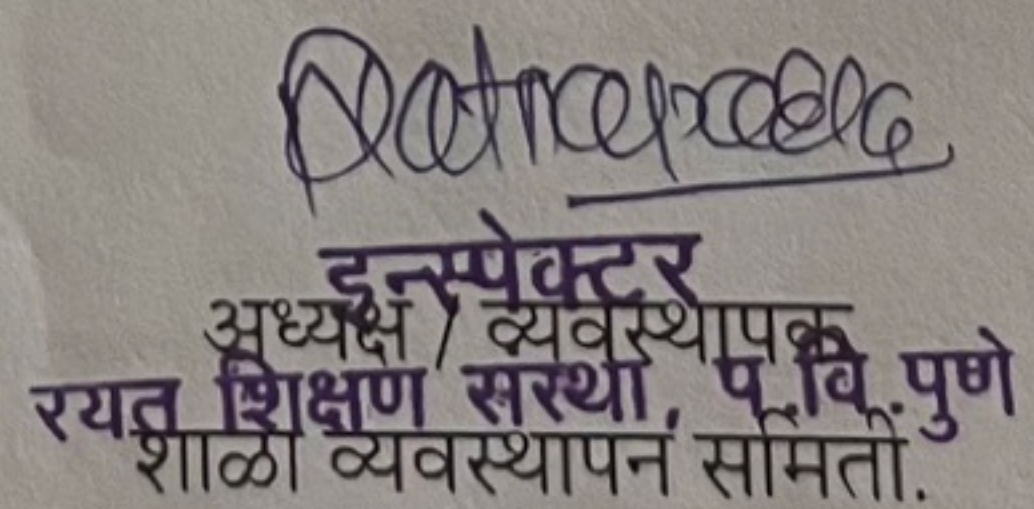 इन्स्पेक्टर
अध्यक्ष / व्यवस्थापक
रयत शिक्षण संस्था, प.वि.पुणे
शाळा व्यवस्थापन समिती.